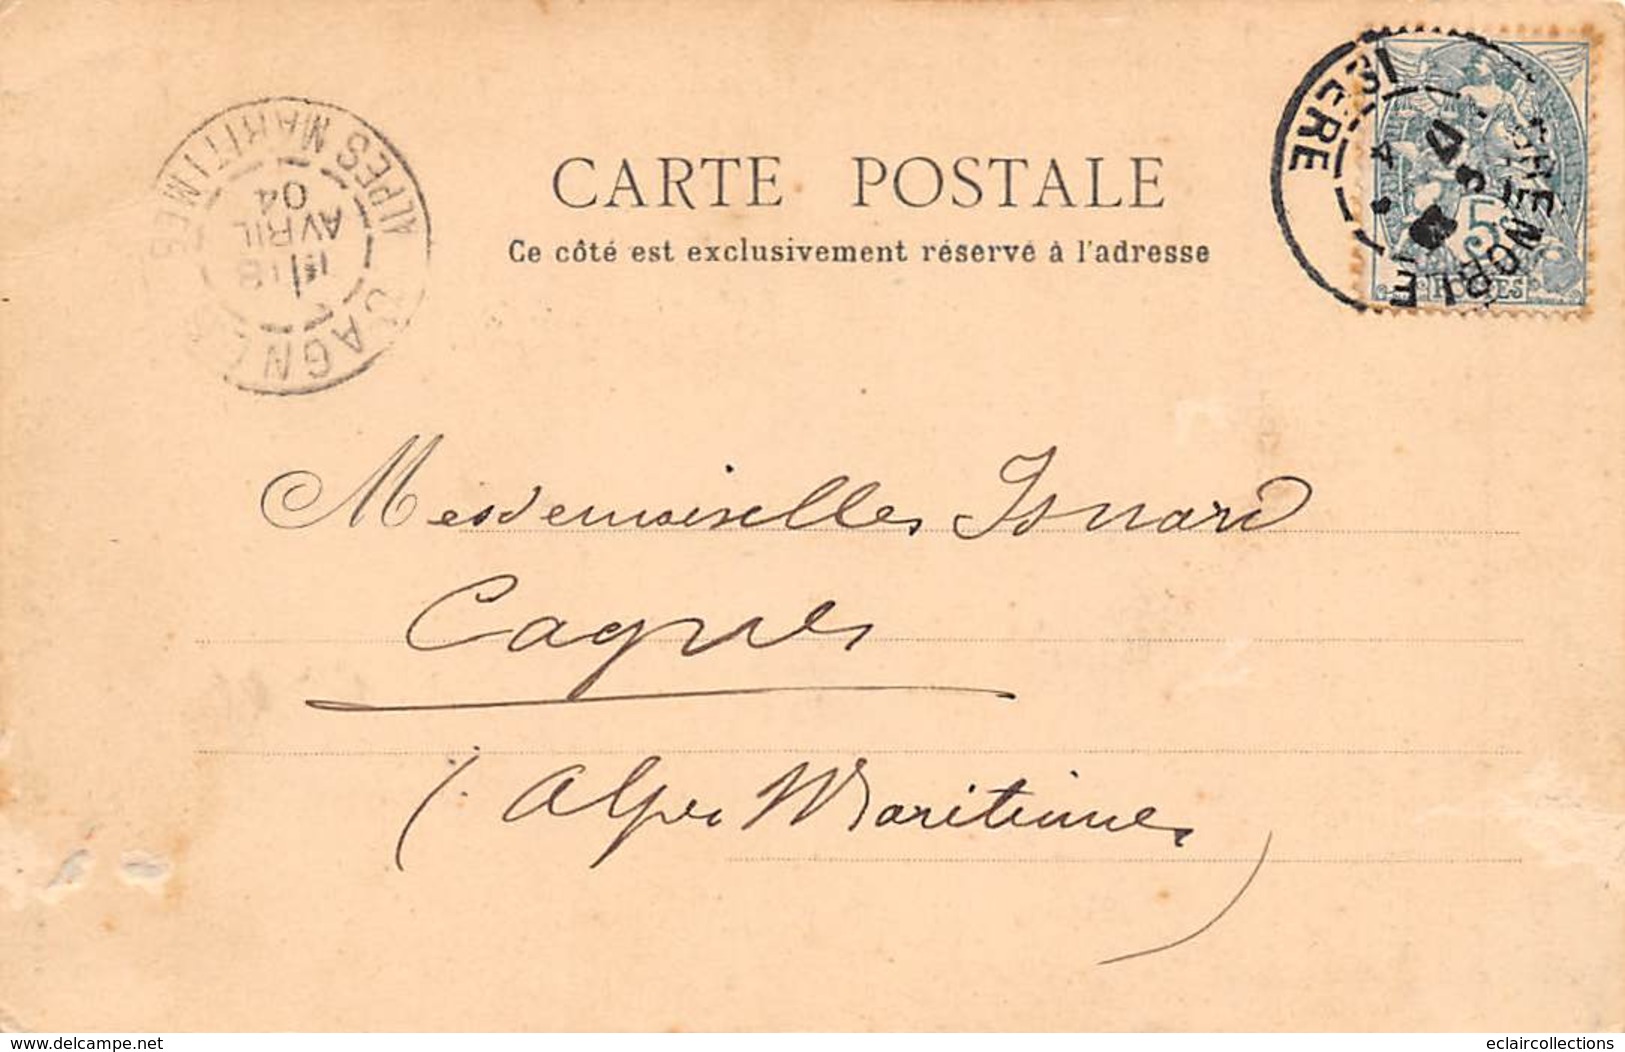 CARTE POSTALE
Ce côté est exclusivement réservé à l'adresse
ISÈRE
GRENOBLE
5
POSTES
ALPES MARITIMES
AVRIL
04
CAGNES
Mesdemoiselles Isnard
Cagnes
(Alpes Maritimes)
www.delcampe.net
eclaircollections